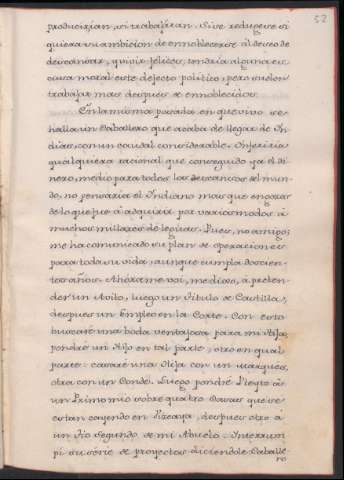 52
producirian, si trabajaran. Si se reduxese si
quiera su ambicion de ennoblecerse al deseo de
descansar, y vivir felices, tendria alguna es
cusa moral este defecto politico; pero suelen
trabajar mas despues de ennoblecidos.
En la misma posada en que vivo se
halla un Caballero que acaba de llegar de In
dias, con un caudal considerable. Inferiria
qualquiera racional que conseguido ya el di
nero, medio para todos los descansos del mun
do, no pensaria el Indiano mas que en gozar
de lo que fue à adquirir por varios modos à
muchos millares de leguas. Pues, no amigo;
me ha comunicado su plan de operaciones
para toda su vida, aunque cumpla doscien
tos años. Ahora me voi, me dixo, à preten
der un Avito, luego un Titulo de Castilla,
despues un Empleo en la Corte. Con esto
buscaré una boda ventajosa para mi Hija
pondré un Hijo en tal parte, otro en qual
parte: casaré una Hija con un Marques,
otra con un Conde. Luego pondré Pleyto à
un Primo mio sobre quatro Casas que se
estan cayendo en Vizcaya, despues otro à
un Tio Segundo de mi Abuelo. Interrum
pi su serie de proyectos diciendole Caballe
ro